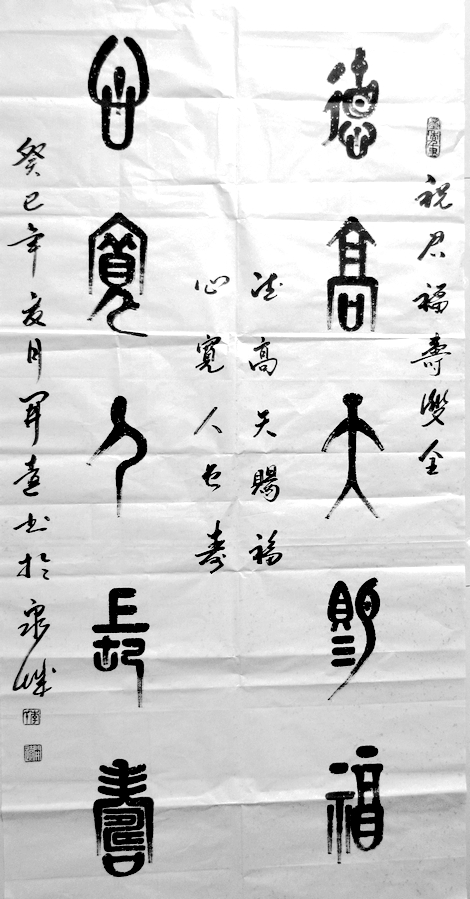 祝君福壽雙全
德高天賜福
德高天賜福
心寬人长寿
心寬人長壽
癸巳年夏月书於泉城